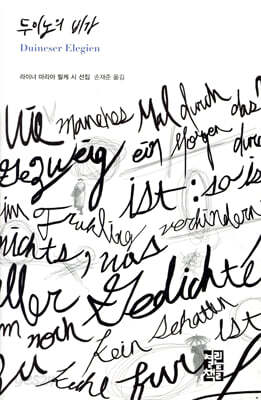 두이노의 비가
Duineser Elegien
라이너 마리아 릴케 시 선집 손재준 옮김
Wie manches Mal durch das
Gezweig ein Morgen
ist: so is
im Frühling verhindern
nichts, was
ller Gedichte
noch kein Schatten ist
zu für
열린
책들